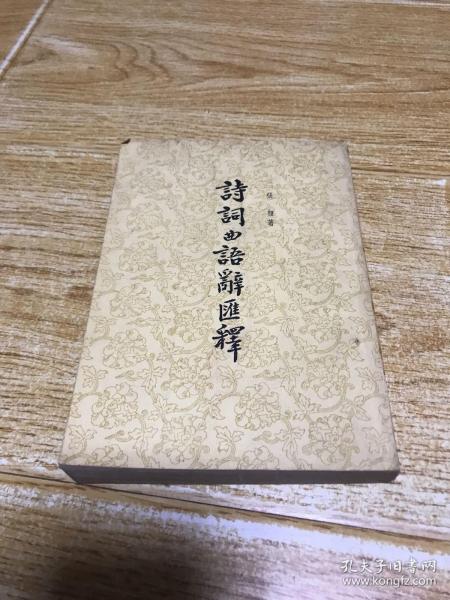 張 相 著
詩詞曲語辭匯釋
孔夫子旧书网
www.kongfz.com